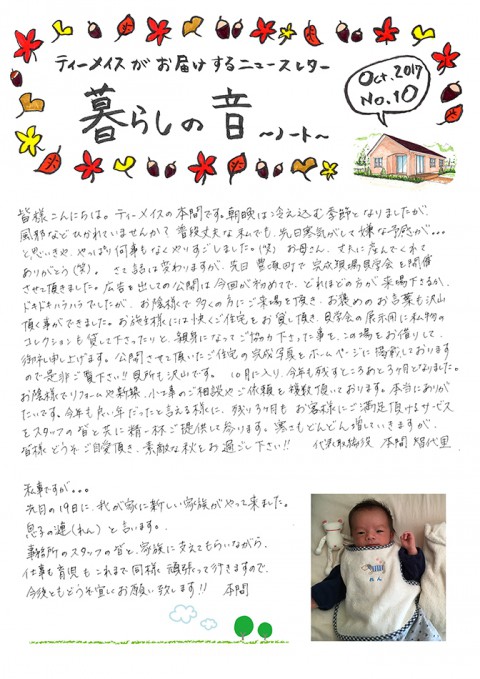 ティーメイスがお届けするニュースレター
Oct. 2017
No.10
暮らしの音
～ノート～
皆様こんにちは。ティーメイスの本間です。朝晩は冷え込む季節となりましたが、
風邪などひかれていませんか？普段丈夫な私でも、先日寒気がして嫌な予感が・・・
と思いきや、やっぱり何事もなくやりすごしました。(笑) お母さん、丈夫に産んでくれて
ありがとう(笑)。さて話は変わりますが、先日豊頃町で完成現場見学会を開催
させて頂きました。広告を出しての公開は今回が初めてで、どれほどの方が来場下さるか、
ドキドキハラハラでしたが、お陰様で多くの方にご来場を頂き、お褒めのお言葉も沢山
頂く事ができました。お施主様には快くご住宅をお貸し頂き、見学会の展示用に私物の
コレクションも貸して下さったりと、親身になってご協力下さった事を、この場をお借りして、
御礼申し上げます。公開させて頂いたご住宅の完成写真をホームページに掲載しております
ので是非ご覧下さい!!見所も沢山です。 10月に入り、今年も残すところあと3ヶ月となりました。
お陰様でリフォームや新築、小工事のご相談やご依頼を複数頂いております。本当にありが
たいです。今年も良い年だったと言える様に、残り3ヶ月もお客様にご満足頂けるサービス
をスタッフの皆と共に精一杯ご提供して参ります。寒さもどんどん増していきますが、
皆様どうぞご自愛頂き、素敵な秋をお過ごし下さい!! 代表取締役 本間 智代里
私事ですが。。。
先月の19日に、我が家に新しい家族がやって来ました。
息子の漣(れん)と言います。
事務所のスタッフの皆と、家族に支えてもらいながら、
仕事も育児もこれまで同様頑張って行きますので、
今後ともどうぞ宜しくお願い致します!! 本間
れん